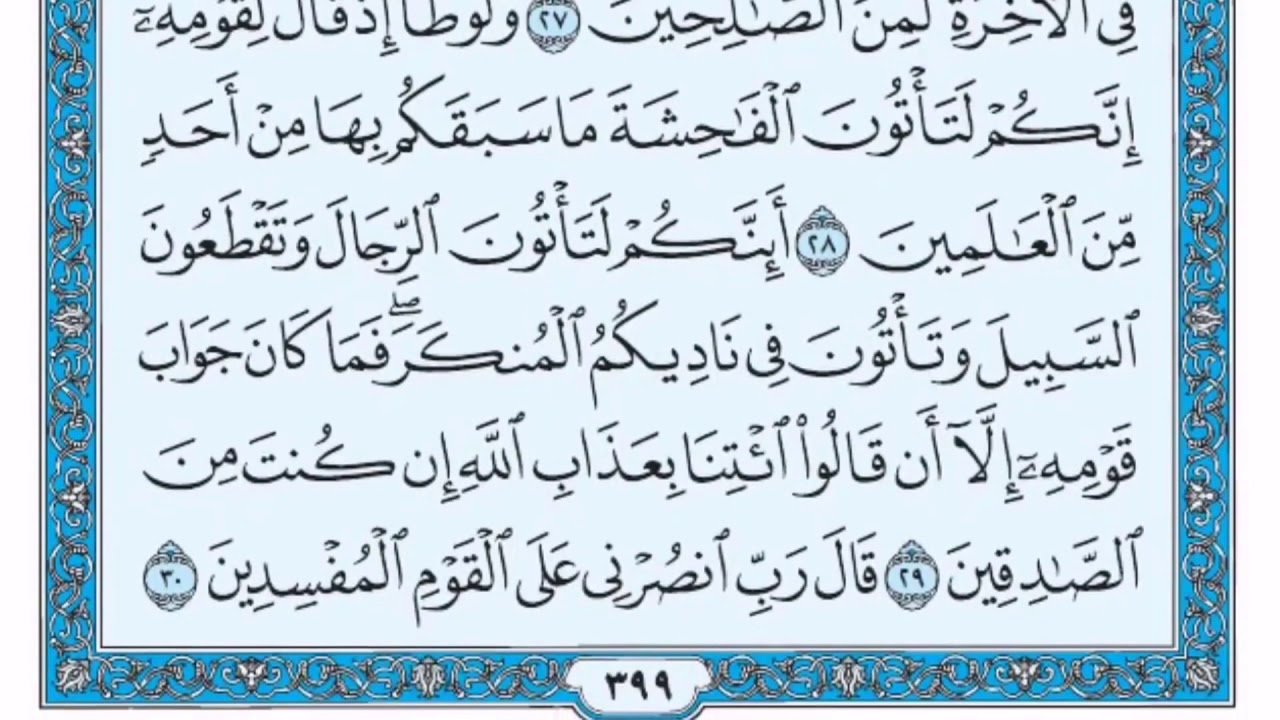 فِي ٱلْأَخِرَةِ لَمِنَ ٱلصَّٰلِحِينَ ٢٧ وَلُوطًا إِذْ قَالَ لِقَوْمِهِۦٓ
إِنَّكُمْ لَتَأْتُونَ ٱلْفَٰحِشَةَ مَا سَبَقَكُم بِهَا مِنْ أَحَدٍ
مِّنَ ٱلْعَٰلَمِينَ ٢٨ أَئِنَّكُمْ لَتَأْتُونَ ٱلرِّجَالَ وَتَقْطَعُونَ
ٱلسَّبِيلَ وَتَأْتُونَ فِي نَادِيكُمُ ٱلْمُنكَرَۖ فَمَا كَانَ جَوَابَ
قَوْمِهِۦٓ إِلَّآ أَن قَالُوا۟ ٱئْتِنَا بِعَذَابِ ٱللَّهِ إِن كُنتَ مِنَ
ٱلصَّٰدِقِينَ ٢٩ قَالَ رَبِّ ٱنصُرْنِي عَلَى ٱلْقَوْمِ ٱلْمُفْسِدِينَ ٣٠
٣٩٩